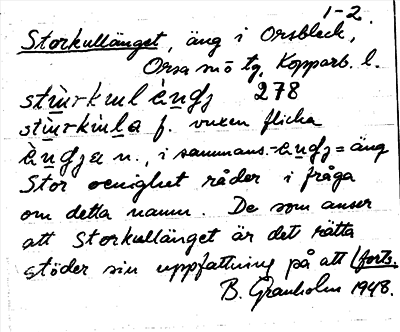 1-2.
Storkullänget, äng i Orsbleck,
Orsa snö tg, Kopparb. l.
278
f. vuxen flicka
n., i sammans. = äng
Stor oenighet råder i fråga
om detta namn. De som anser
att Storkullänget är det rätta
stöder sin uppfattning på att (forts.
B. Granholm 1948.